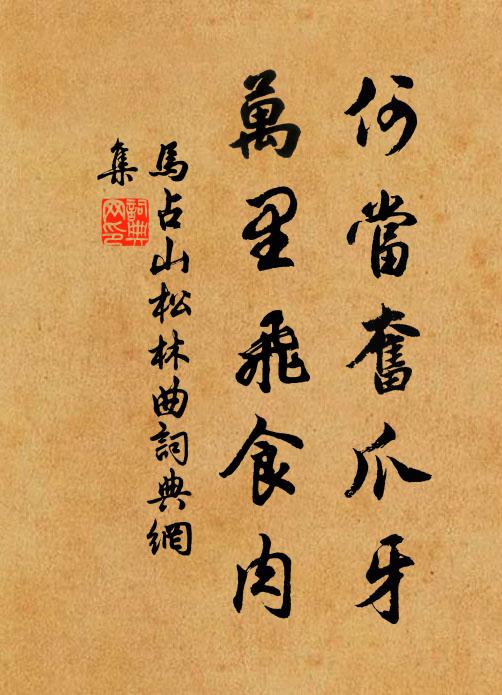 何當奮爪牙
萬里飛食肉
馬占山松林曲詞典網
集
詞典网印